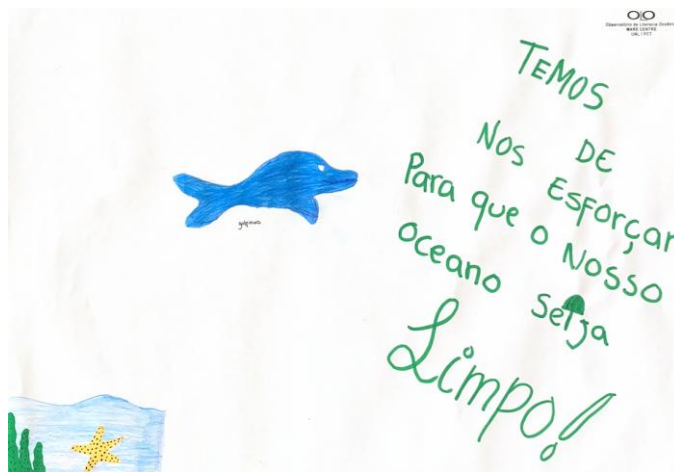 Observatório de Literacia Oceânica
MARE CENTRE
TEMOS
DE
NOS ESForçar
Para que o NOSSO
oceano Seja
Limpo!